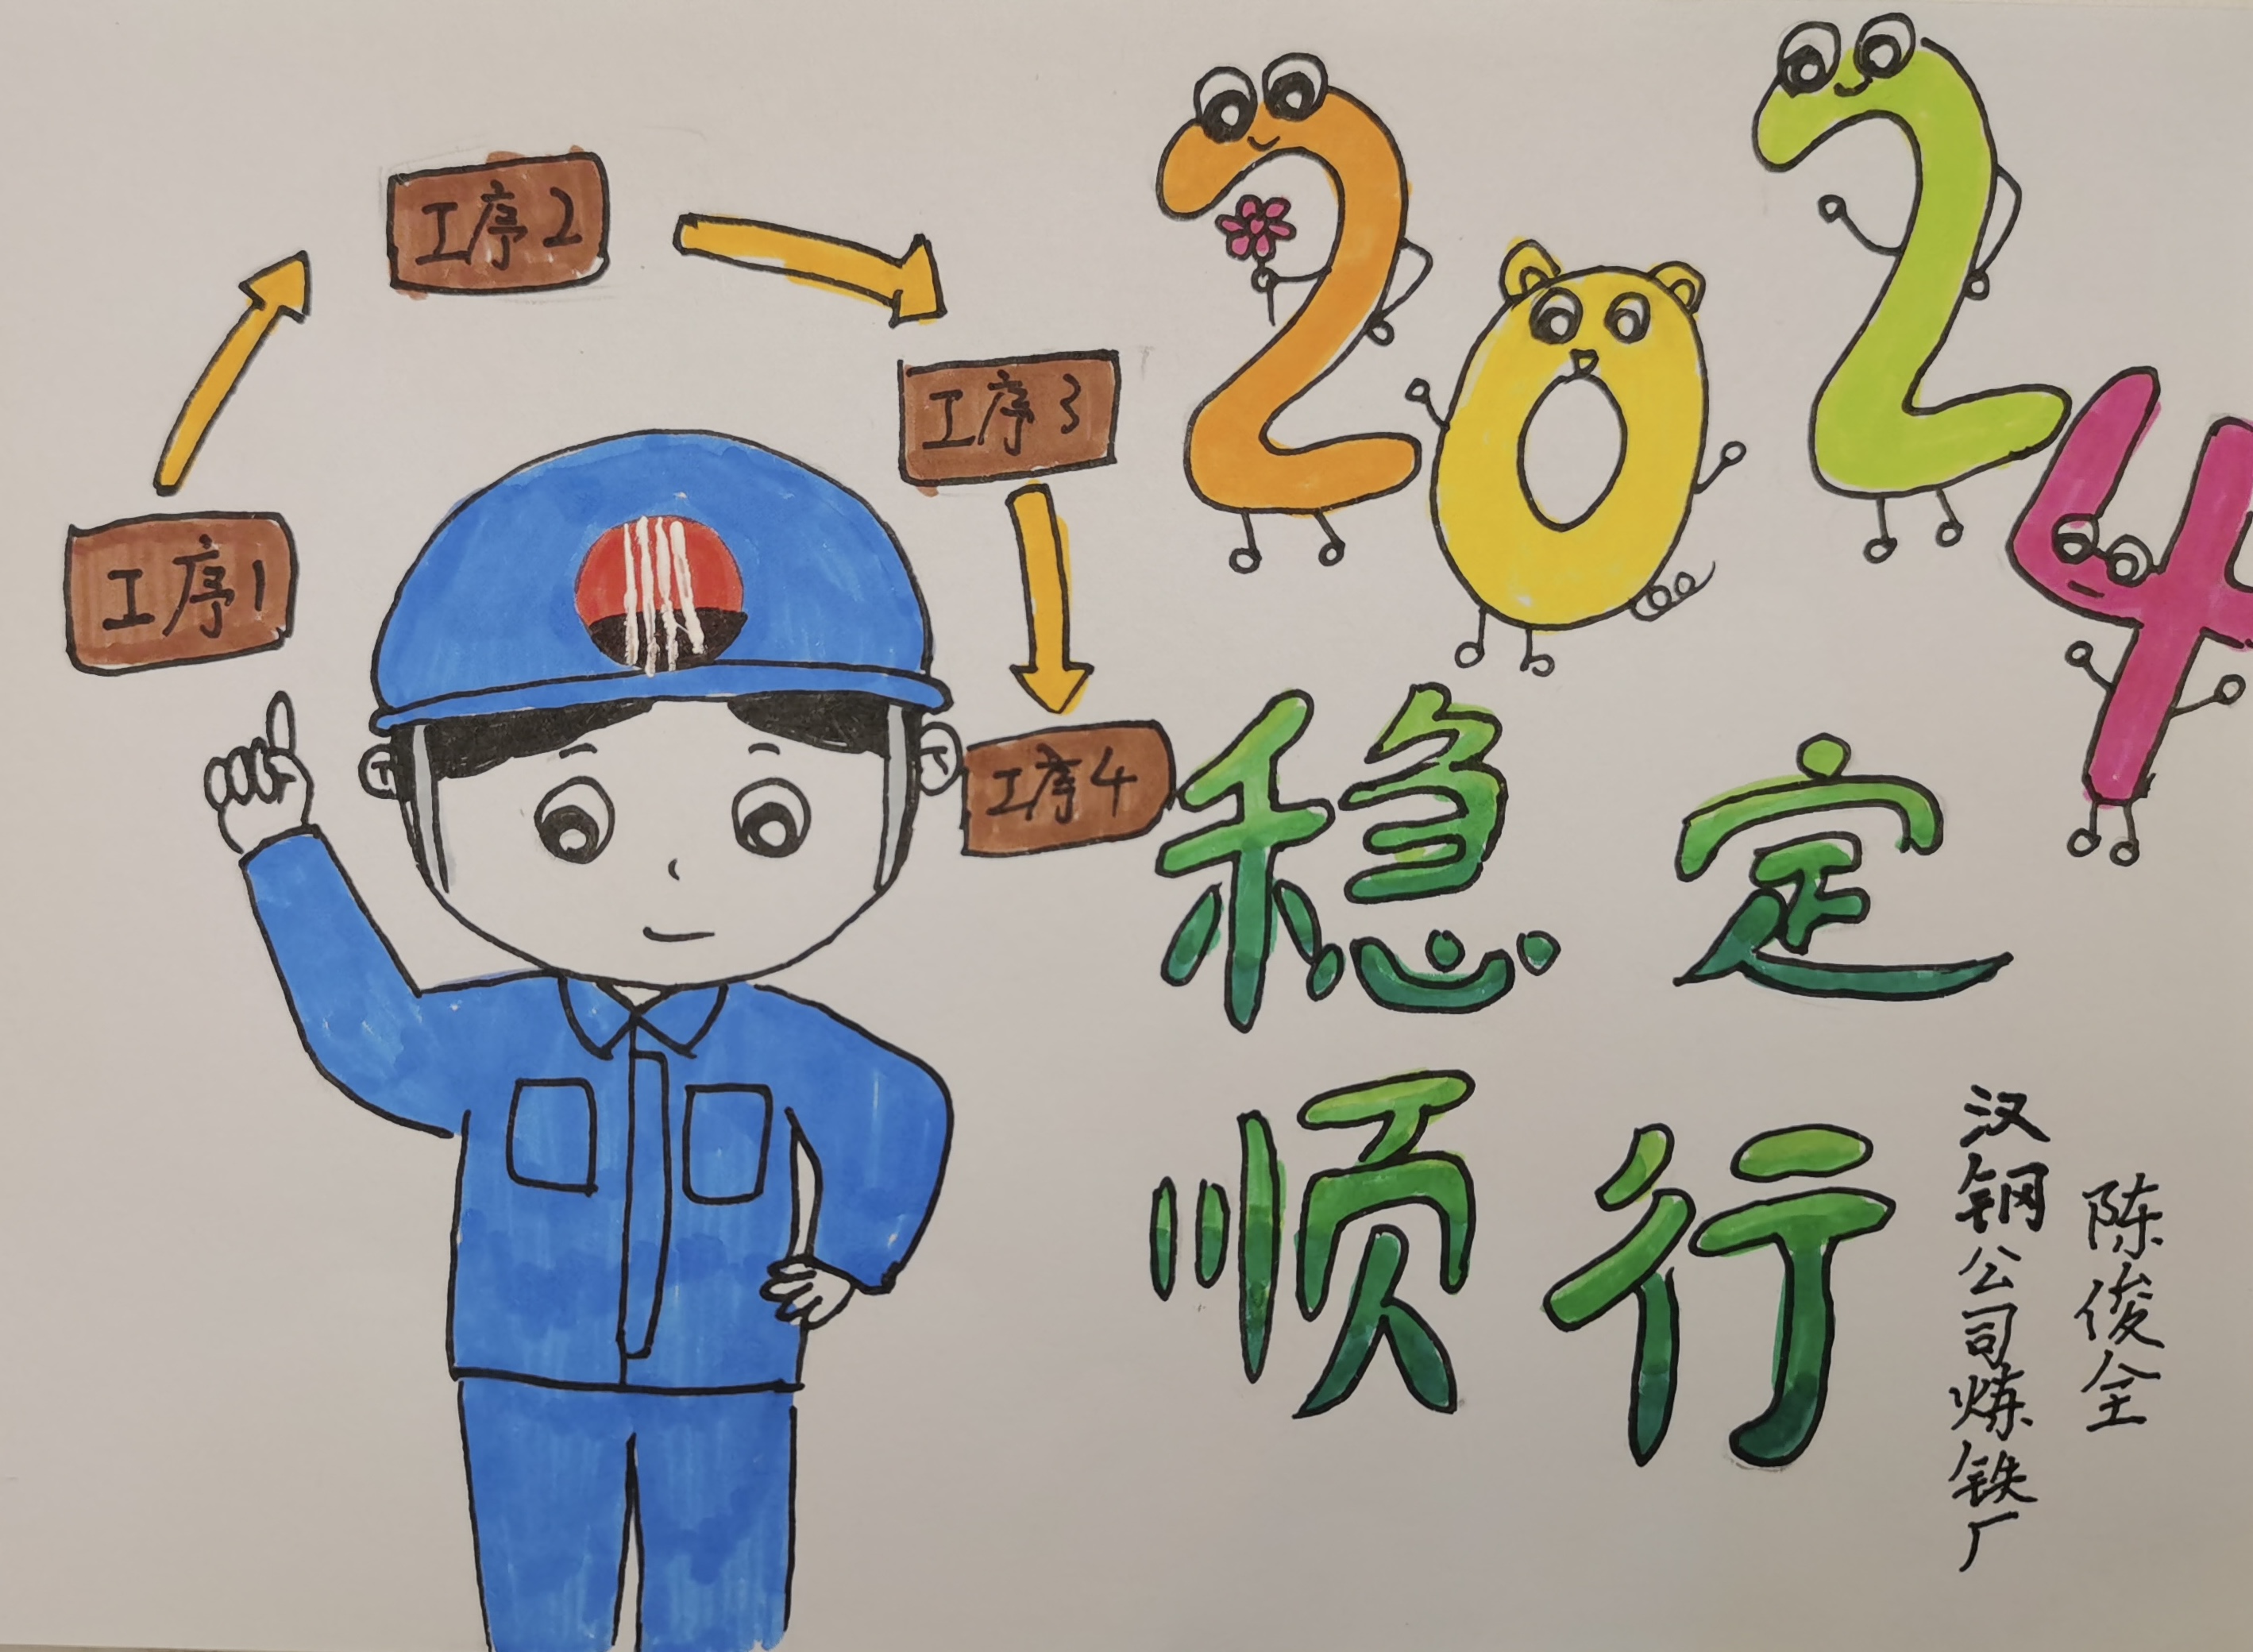 工序1
工序2
工序3
工序4
2024
稳定
顺行
汉钢公司炼铁厂
陈俊全